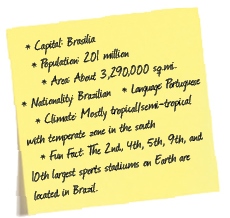 * Capital: Brasilia
* Population: 201 million
* Area: About 3,290,000 sq.mi.
* Nationality: Brazilian * Language: Portuguese
* Climate: Mostly tropical/semi-tropical
with temperate zone in the south
* Fun Fact: The 2nd, 4th, 5th, 9th, and
10th largest sports stadiums on Earth are
located in Brazil.